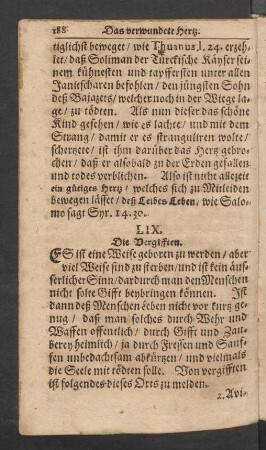 188 Das verwundete Hertz.
tiglichst beweget / wie Thuanus l. 24. erzeh-
let / daß Soliman der Türckische Käyser sei-
nem kühnesten und tapffersten unter allen
Janitscharen befohlen / den jüngsten Sohn
deß Bajazets / welcher noch in der Wiege la-
ge / zu tödten. Als nun dieser das schöne
Kind gesehen / wie es lachte / und mit dem
Strang / damit er es stranguliren wolte /
scherzete / ist ihm darüber das Hertz gebro-
chen / daß er alsobald zu der Erden gefallen
und todes verblichen. Also ist nicht allezeit
ein gütiges Hertz / welches sich zu Mitleiden
bewegen lässet / deß Leibes Leben / wie Salo-
mo sagt Spr. 14. 30.
LIX.
Die Vergifften.
ES ist eine Weise geboren zu werden / aber
viel Weise sind zu sterben / und ist kein äus-
serlicher Sinn / dardurch man den Menschen
nicht solte Gifft beybringen können. Ist
dann deß Menschen Leben nicht vor kurtz ge-
nug / daß man solches durch Wehr und
Waffen offentlich / durch Gifft und Zau-
berey heimlich / ja durch Fressen und Sauf-
fen unbedachtsam abkürtzen / und vielmals
die Seele mit tödten solle. Von vergifften
ist folgendes dieses Orts zu melden.
2. Avi-